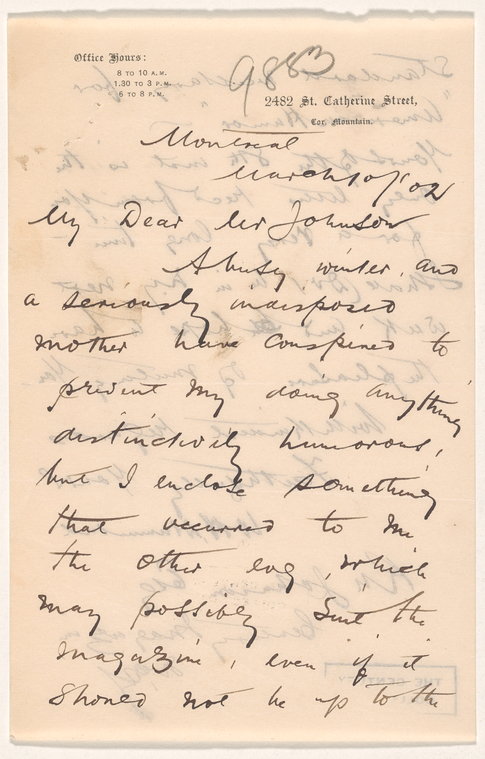 Office Hours:
8 TO 10 A.M.
1.30 TO 3 P.M.
6 TO 8 P.M.
9883
2482 St. Catherine Street,
Cor. Mountain.
Montreal
March 10/02
My Dear Mr Johnson
A busy winter, and
a seriously indisposed
mother have conspired to
prevent my doing anything
distinctively humorous,
but I enclose something
that occurred to me
the other evg, which
may possibly suit the
magazine, even if it
should not be up to the